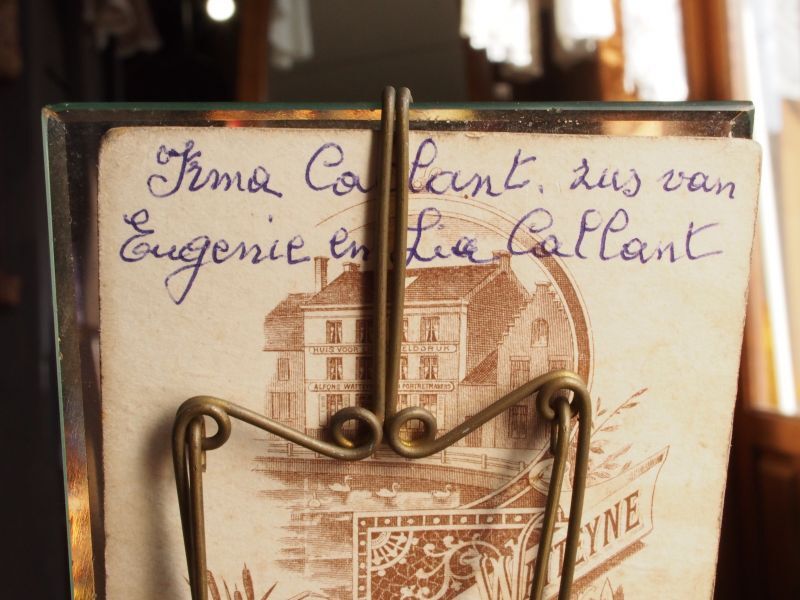 Irma Callant. zus van
Eugenie en Lia Callant
HUIS VOOR
ELDRUK
ALFONS WATTEYNE
PORTRETMAKERS
WATTEYNE